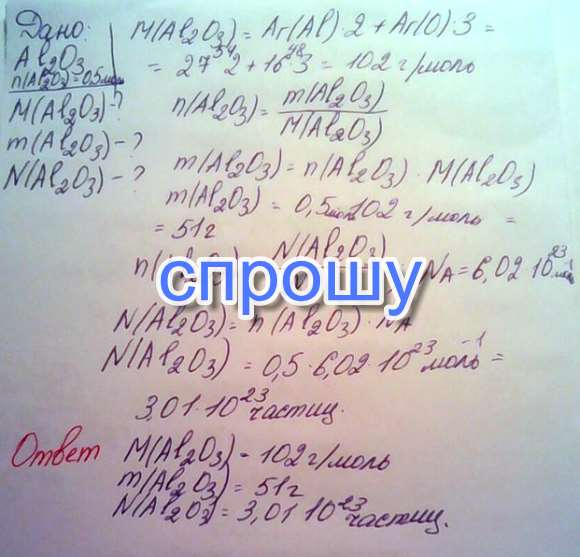 Дано:
Al₂O₃
n(Al₂O₃) = 0,5 моль
M(Al₂O₃) - ?
m(Al₂O₃) - ?
N(Al₂O₃) - ?
M(Al₂O₃) = Ar(Al) · 2 + Ar(O) · 3 =
= 27 · 2 ⁵⁴ + 16 · 3 ⁴⁸ = 102 г/моль
n(Al₂O₃) = m(Al₂O₃)
M(Al₂O₃)
m(Al₂O₃) = n(Al₂O₃) · M(Al₂O₃)
m(Al₂O₃) = 0,5 моль · 102 г/моль =
= 51 г
n(Al₂O₃) N(Al₂O₃) NA = 6,02 · 10²³
спрошу
N(Al₂O₃) = n(Al₂O₃) · NA
N(Al₂O₃) = 0,5 · 6,02 · 10²³ моль⁻¹ =
3,01 · 10²³ частиц.
Ответ M(Al₂O₃) - 102 г/моль
m(Al₂O₃) = 51 г
N(Al₂O₃) = 3,01 · 10²³ частиц.